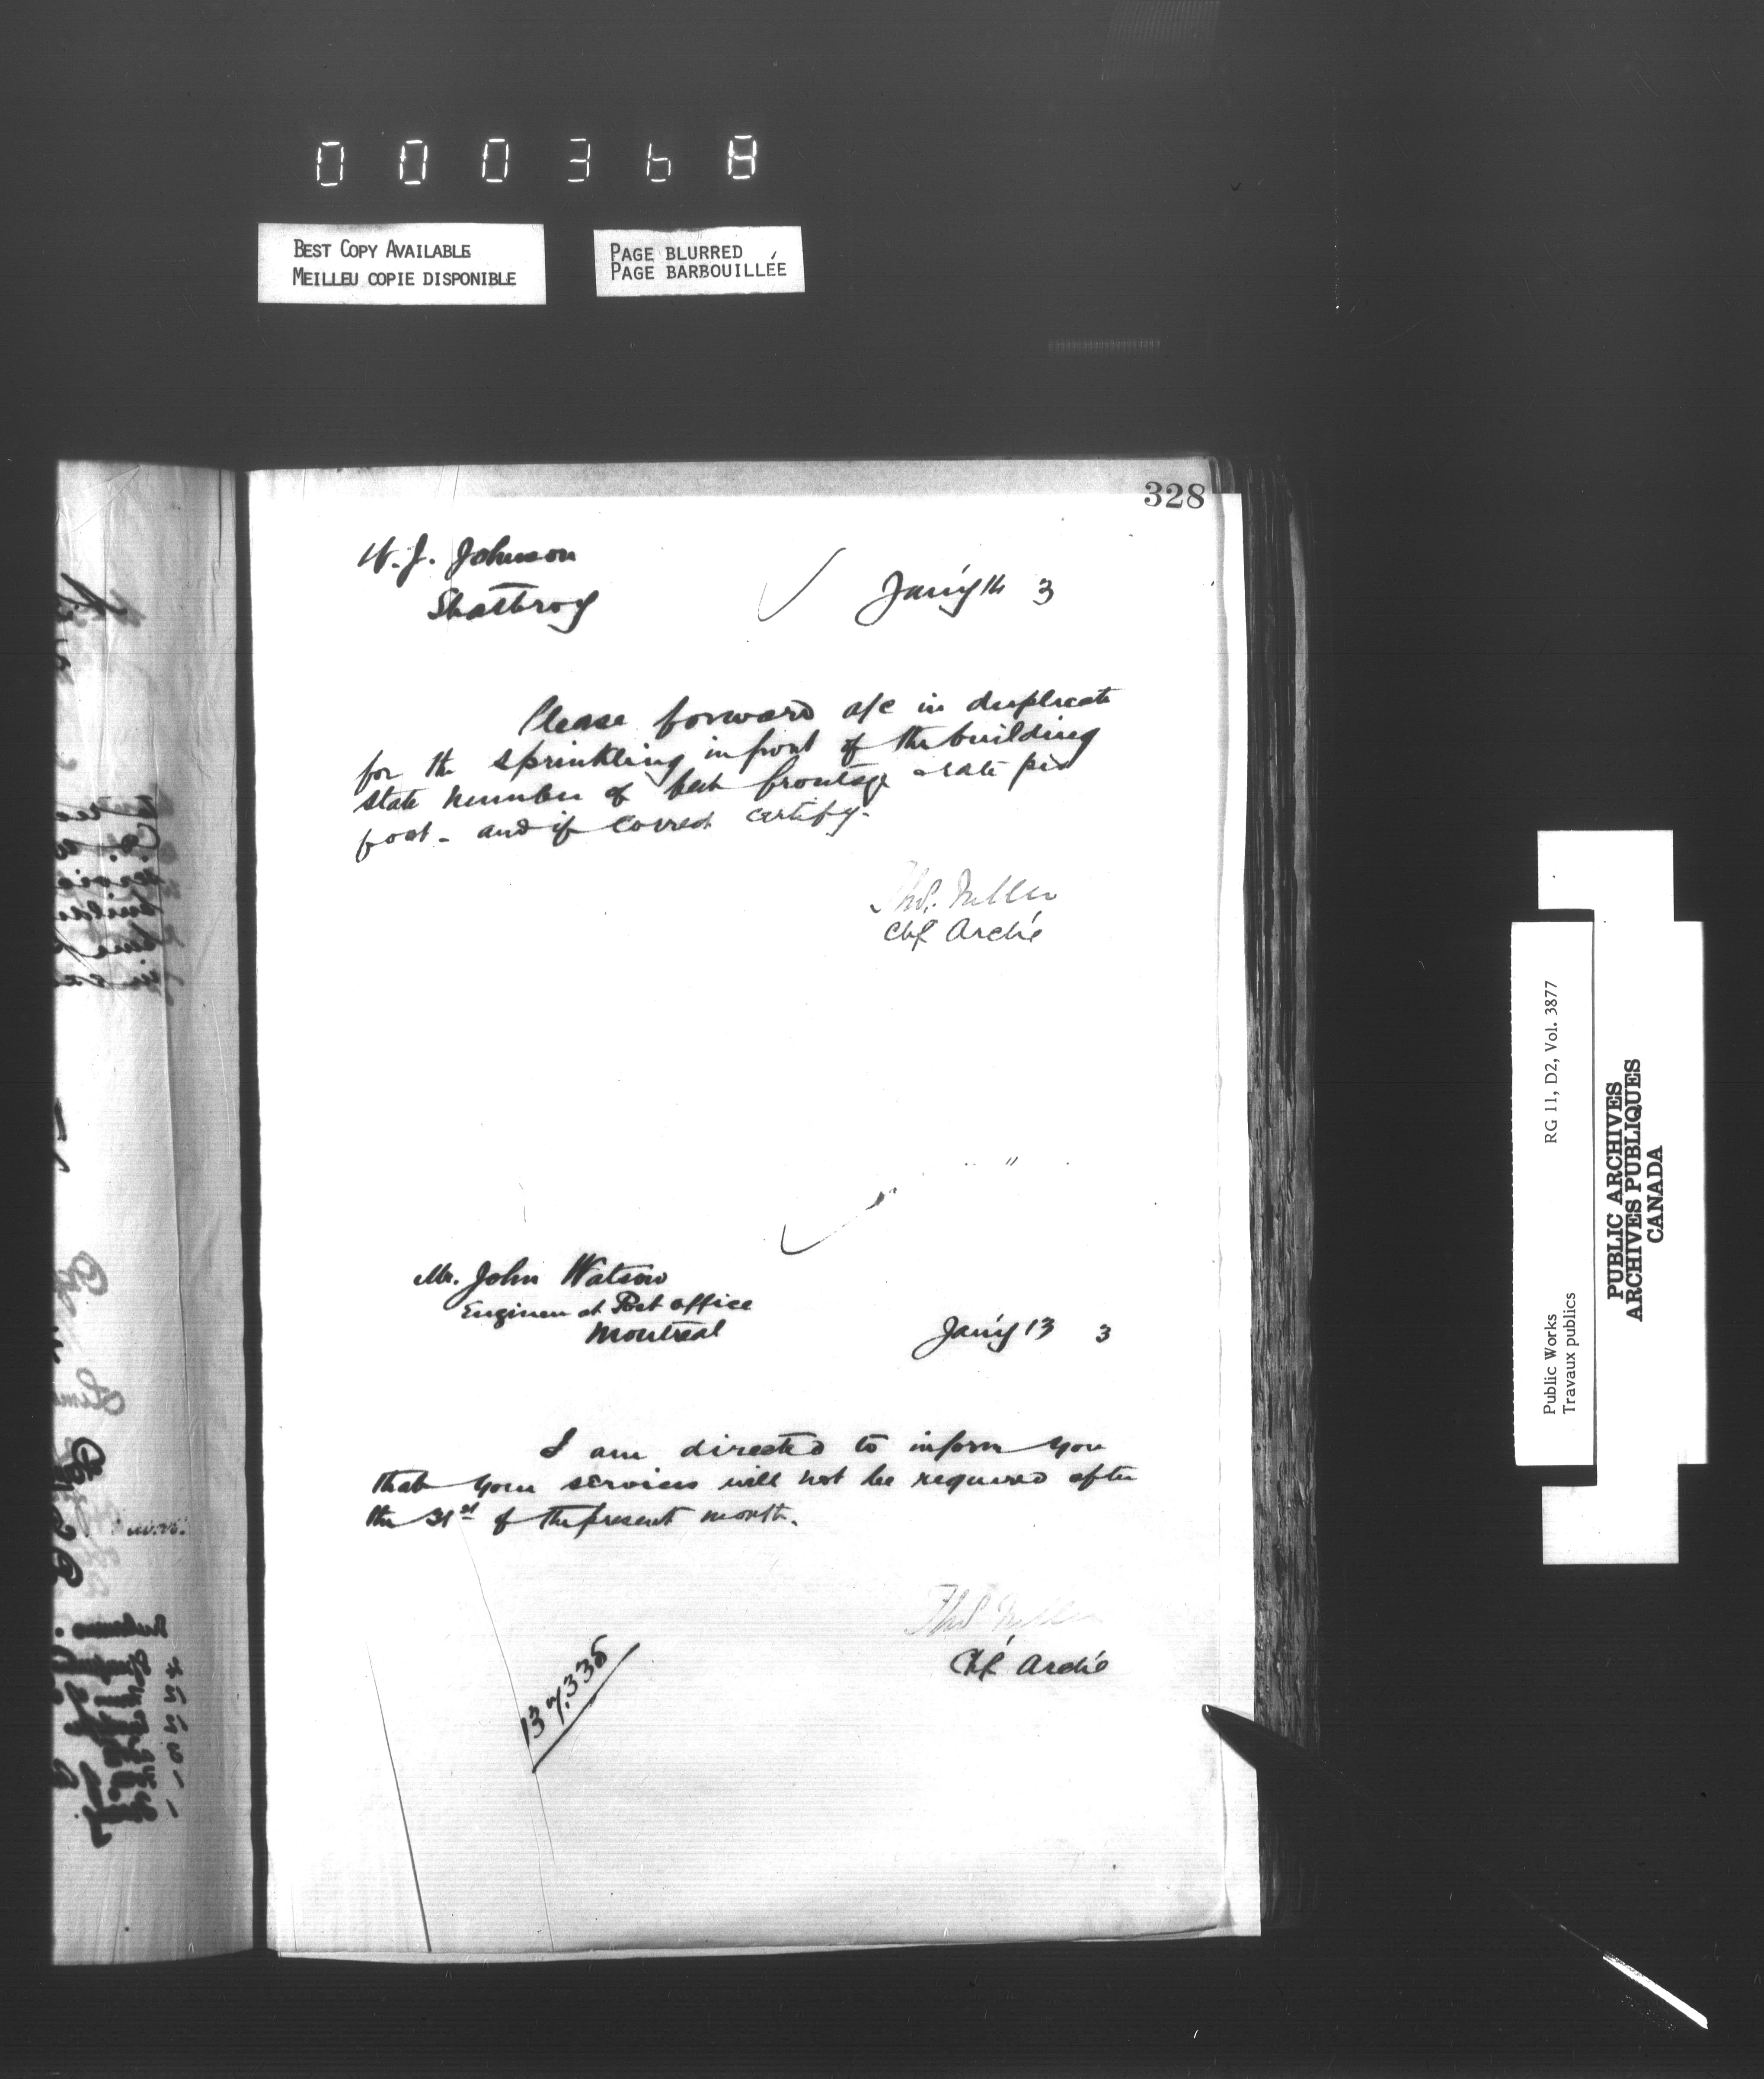 000368
BEST COPY AVAILABLE
MEILLEU COPIE DISPONIBLE
PAGE BLURRED
PAGE BARBOUILLÉE
328
W. J. Johnson
Strathroy
Jan'y 14 3
Please forward a/c in duplicate
for the sprinkling in front of the building
state number of feet frontage & rate per
foot - and if correct certify.
Thos. Fuller
Chf Archt
Mr. John Watson
Engineer at Post office
Montreal
Jan'y 13 3
I am directed to inform you
that your services will not be required after
the 31st of the present month.
Thos Fuller
Chf Archt
137,335
Public Works
Travaux publics
RG 11, D2, Vol. 3877
PUBLIC ARCHIVES
ARCHIVES PUBLIQUES
CANADA